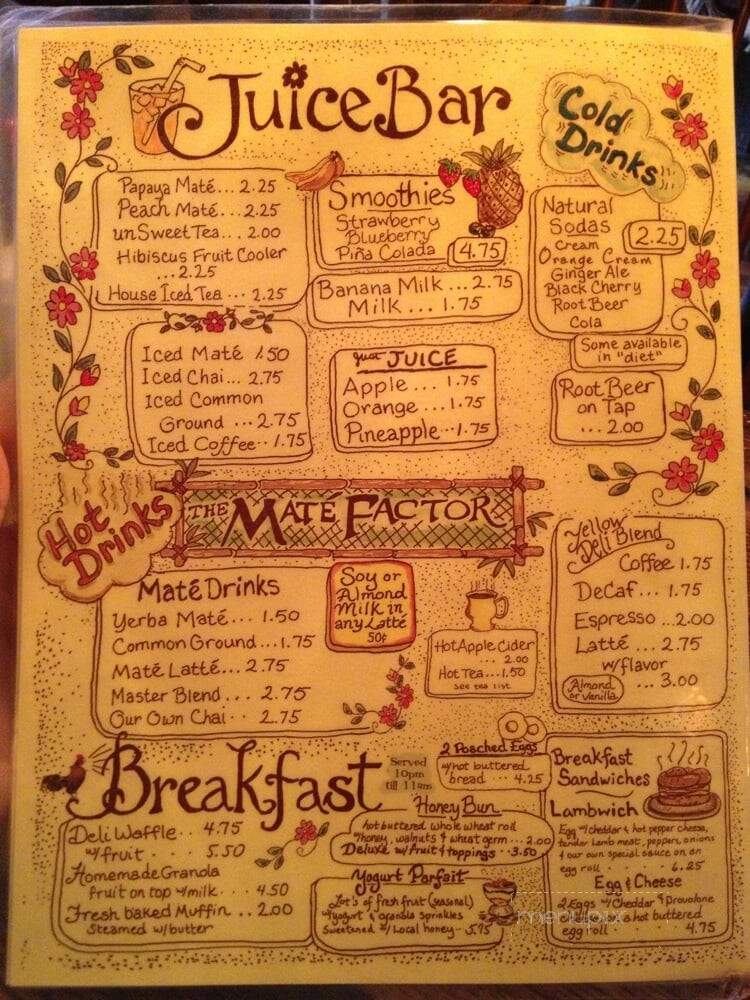 Juice Bar
Cold
Drinks
Papaya Maté... 2.25
Peach Maté... 2.25
unSweet Tea... 2.00
Hibiscus Fruit Cooler
... 2.25
House Iced Tea ... 2.25
Smoothies
Strawberry
Blueberry
Piña Colada
4.75
Banana Milk ... 2.75
Milk ... 1.75
Natural
Sodas
2.25
Cream
Orange Cream
Ginger Ale
Black Cherry
Root Beer
Cola
Some available
in "diet"
Iced Maté 1.50
Iced Chai... 2.75
Iced Common
Ground ... 2.75
Iced Coffee.. 1.75
just JUICE
Apple ... 1.75
Orange ... 1.75
Pineapple...1.75
Root Beer
on Tap
... 2.00
Hot
Drinks
THE MATÉ FACTOR
Maté Drinks
Yerba Maté... 1.50
Common Ground...1.75
Maté Latté... 2.75
Master Blend ... 2.75
Our Own Chai .. 2.75
Soy or
Almond
Milk in
any Latté
50¢
Hot Apple Cider
... 2.00
Hot Tea...1.50
see tea list
Yellow
Deli Blend
Coffee 1.75
DeCaf... 1.75
Espresso ...2.00
Latté ... 2.75
w/flavor
Almond
or Vanilla
... 3.00
Breakfast
Served
10pm
till 11am
Deli Waffle.. 4.75
w/ fruit . . 5.50
Homemade Granola
fruit on top w/milk . . 4.50
Fresh baked Muffin .. 2.00
Steamed w/butter
2 Poached Eggs
w/hot buttered
bread ... 4.25
Honey Bun
hot buttered whole wheat roll
w/honey, walnuts & wheat germ ... 2.00
Deluxe w/ fruit & toppings .. 3.50
Yogurt Parfait
Lot's of fresh fruit (seasonal)
w/yogurt & granola sprinkles
Sweetened w/ Local honey .. 5.75
Breakfast
Sandwiches
Lambwich
Egg w/cheddar & hot pepper cheese,
tender lamb meat, peppers, onions
& our own special sauce on an
egg roll . . . 6.25
Egg & Cheese
2 Eggs w/ Cheddar & Provolone
cheese on a hot buttered
egg roll . . . 4.75
menupix